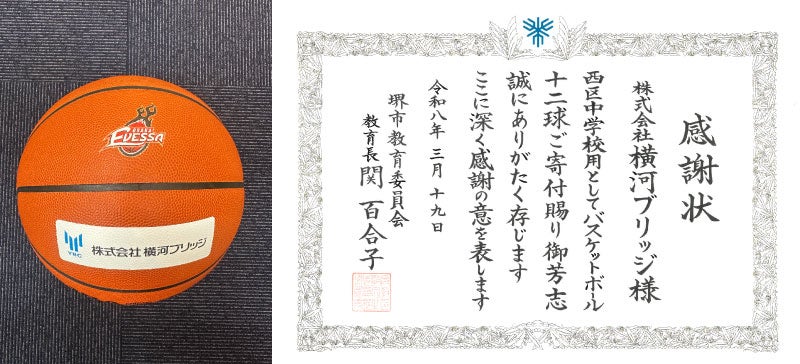 OSAKA
EVESSA
YBC
株式会社 横河ブリッジ
感謝状
株式会社 横河ブリッジ 様
西区中学校用としてバスケットボール
十二球ご寄付賜り御芳志
誠にありがたく存じます
ここに深く感謝の意を表します
令和八年 三月 十九日
堺市教育委員会
教育長 関 百合子